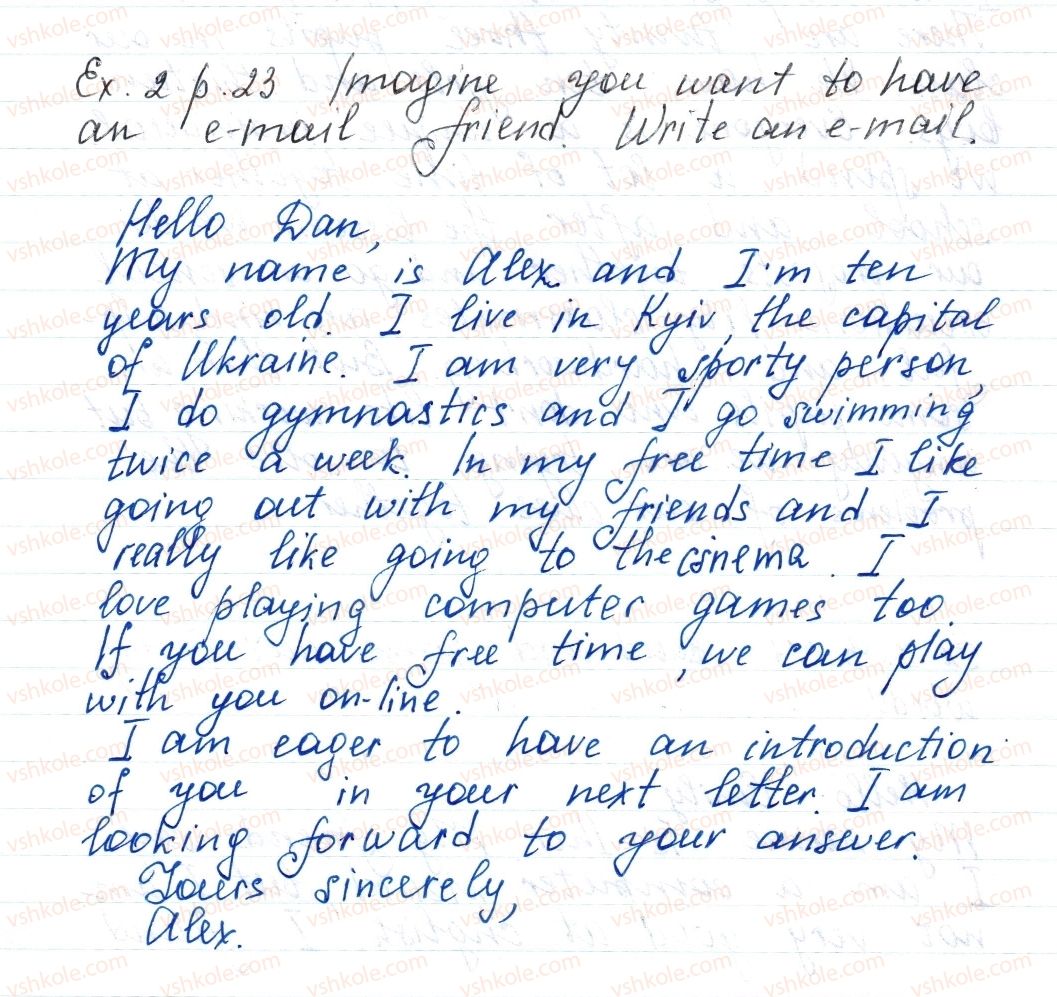 Ex. 2 p. 23 Imagine you want to have
an e-mail friend. Write an e-mail.
Hello Dan,
My name is Alex and I'm ten
years old. I live in Kyiv, the capital
of Ukraine. I am very sporty person,
I do gymnastics and I go swimming
twice a week. In my free time I like
going out with my friends and I
really like going to the cinema. I
love playing computer games too.
If you have free time, we can play
with you on-line.
I am eager to have an introduction
of you in your next letter. I am
looking forward to your answer.
Yours sincerely,
Alex.
vshkole.com